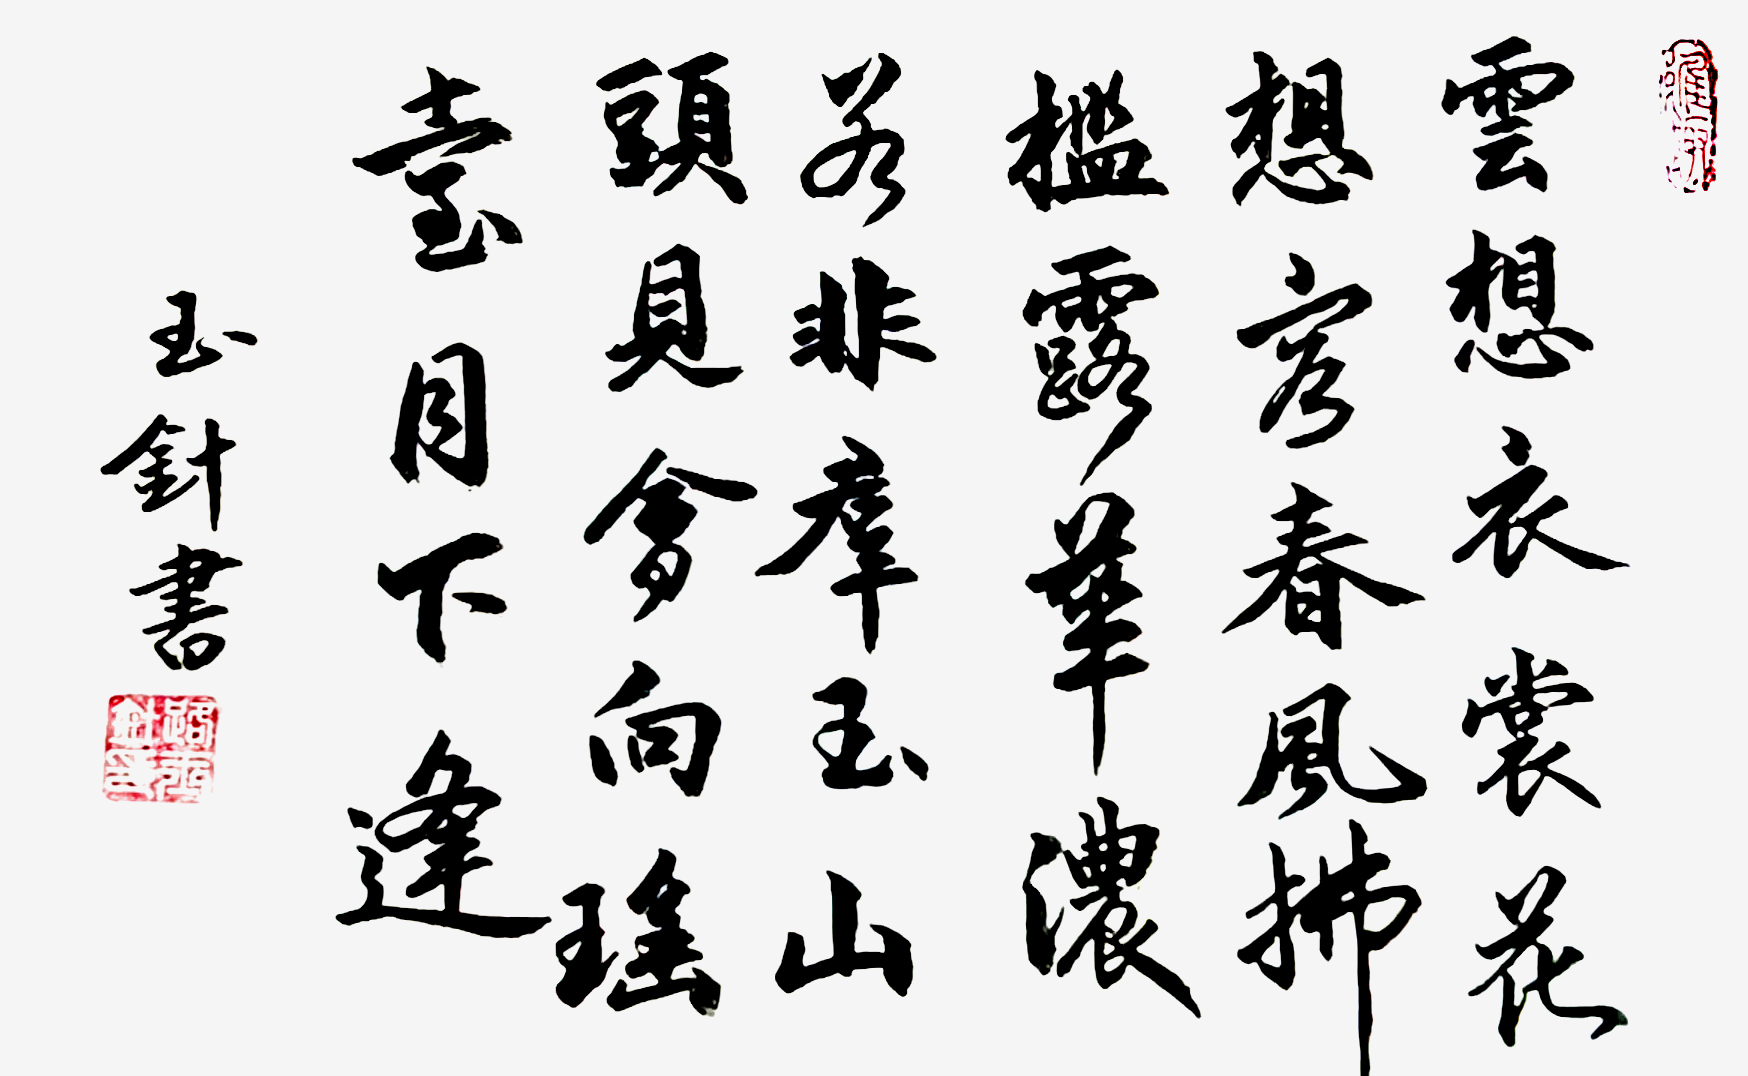 雲想衣裳花
想容春風拂
檻露華濃
若非羣玉山
頭見會向瑤
臺月下逢
玉針書
路玉針印